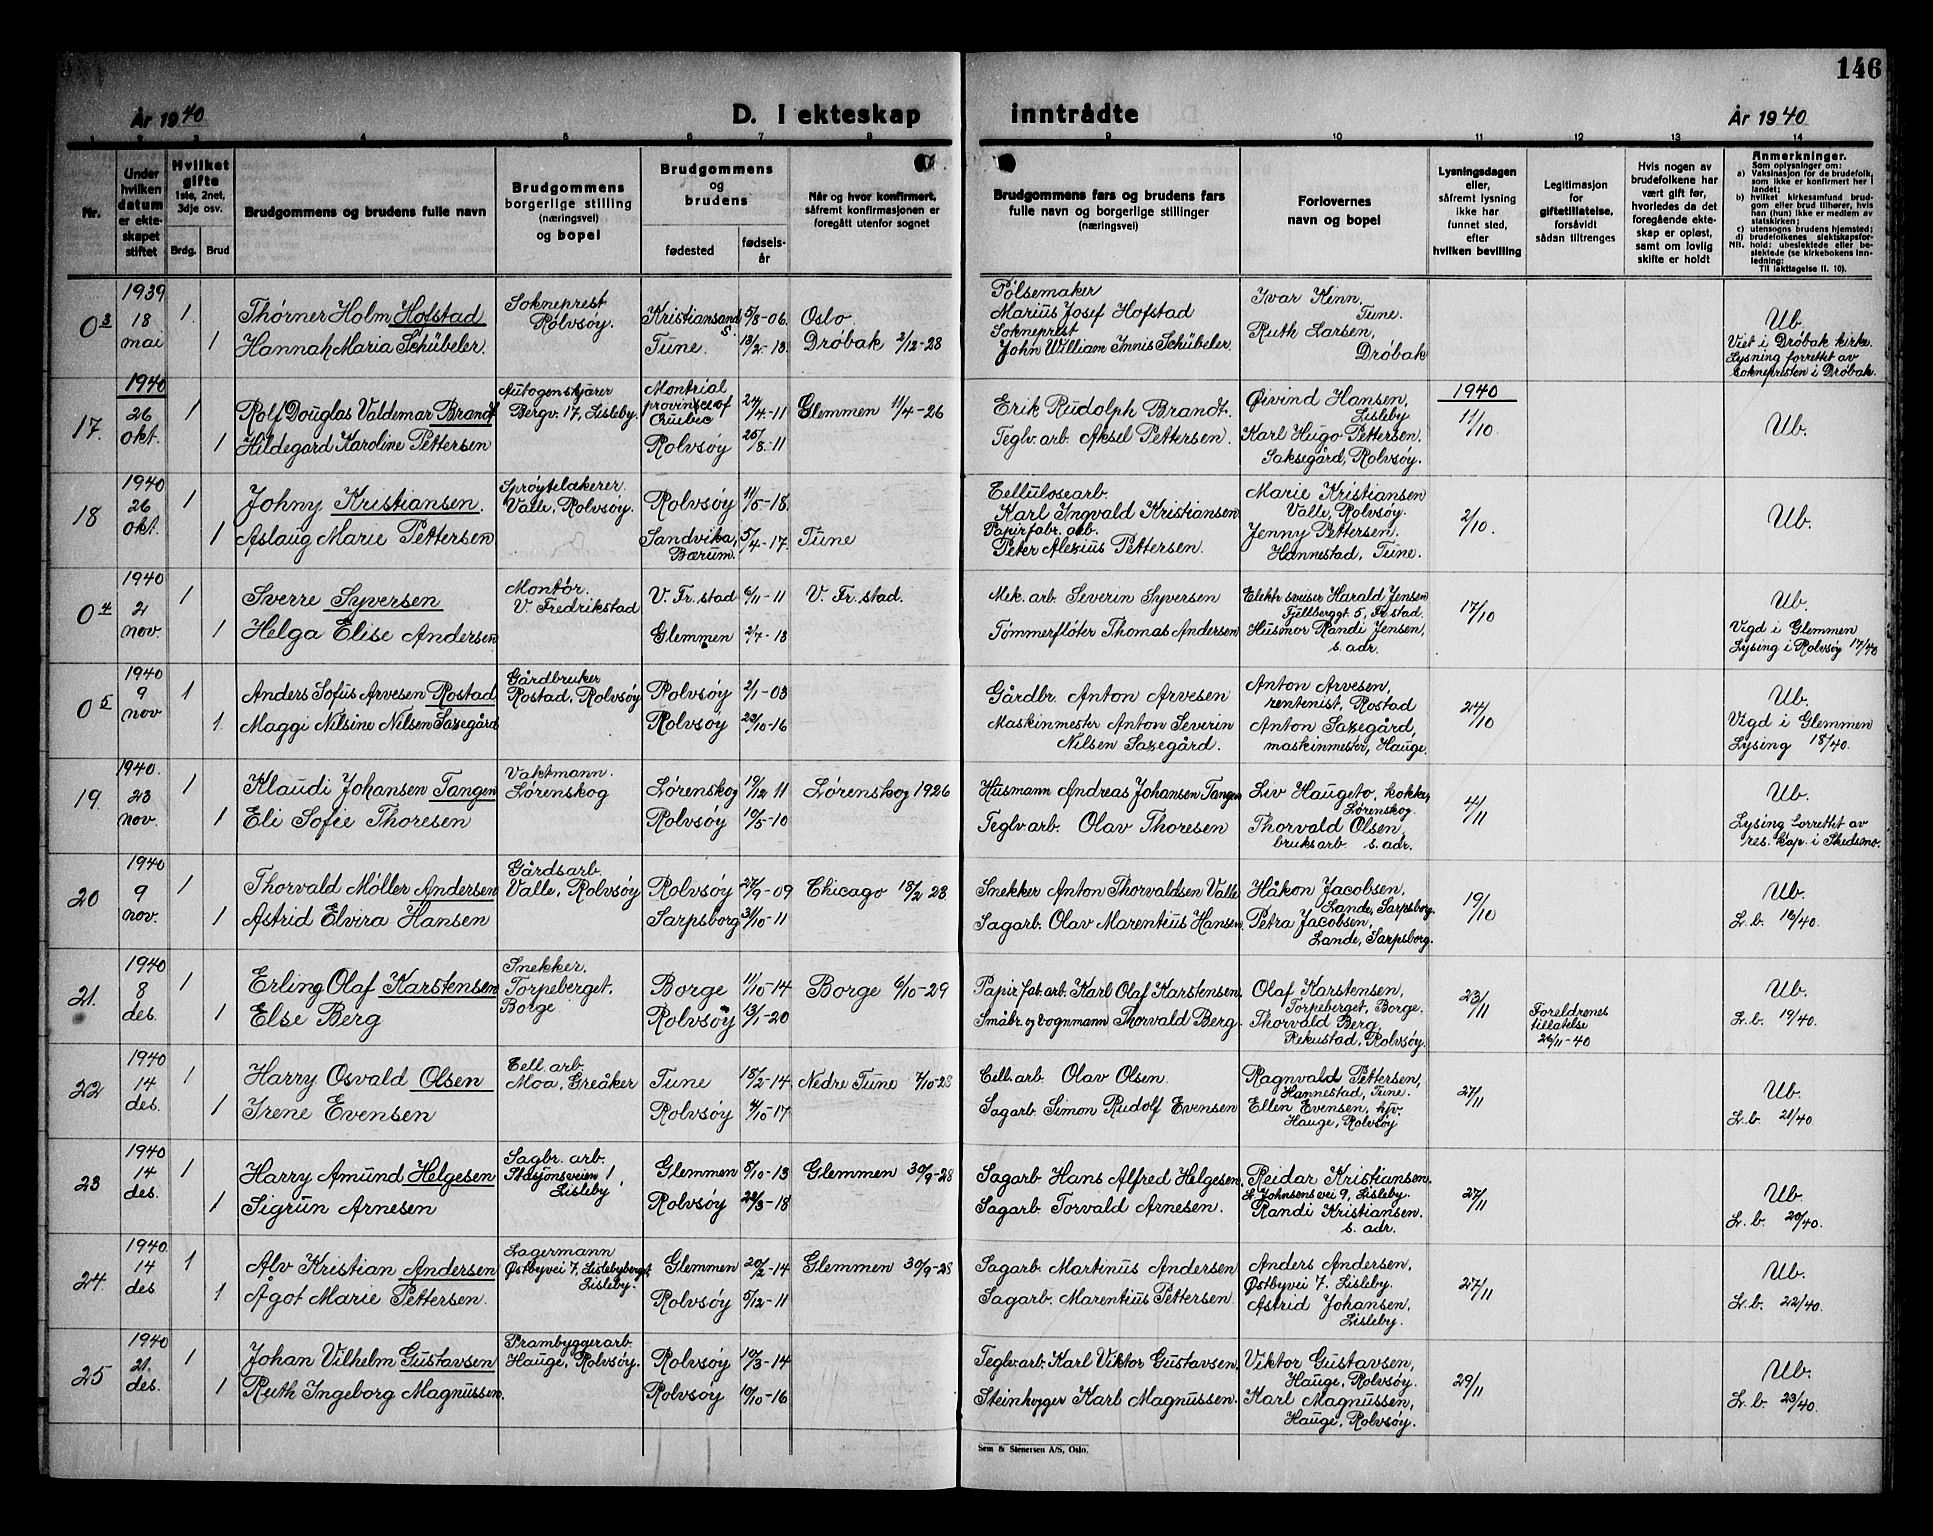 146
År 1940
D. I ekteskap inntrådte
År 1940
1 2 3 4 5 6 7 8 9 10 11 12 13 14
Nr.
Under hvilken datum er ekteskapet stiftet
Hvilket gifte 1ste, 2net, 3dje osv.
Brdg. Brud
Brudgommens og brudens fulle navn
Brudgommens borgerlige stilling (næringsvei) og bopel
Brudgommens og brudens
fødested
fødselsår
Når og hvor konfirmert, såfremt konfirmasjonen er foregått utenfor sognet
Brudgommens fars og brudens fars fulle navn og borgerlige stillinger (næringsvei)
Forlovernes navn og bopel
Lysningsdagen eller, såfremt lysning ikke har funnet sted, efter hvilken bevilling
Legitimasjon for giftetillatelse, forsåvidt sådan tiltrenges
Hvis nogen av brudefolkene har vært gift før, hvorledes da det foregående ekteskap er opløst, samt om lovlig skifte er holdt
Anmerkninger.
Som oplysninger om:
a) Vaksinasjon for de brudefolk, som ikke er konfirmert her i landet;
b) hvilket kirkesamfund brudgom eller brud tilhører, hvis han (hun) ikke er medlem av statskirken;
c) utensogns brudens hjemsted;
d) brudefolkenes slektskapsforhold: ubeslektede eller beslektede (se kirkebokens innledning:
NB.
Til Iakttagelse II. 10).
0 3
1939 18 mai
1
Thørner Holm Hofstad
Sokneprest Rolvsøy.
Kristiansand S. 5/8-06.
Oslo
Pølsemaker Marius Josef Hofstad
Ivar Kinn, Tune.
1
Hannah Maria Schübeler.
Tune. 13/2-13.
Drøbak 2/12-28
Sokneprest John William Innis Schübeler.
Ruth Larsen, Drøbak
Ub.
Viet i Drøbak kirke.
Lysning forrettet av
soknepresten i Drøbak.
17.
1940 26 okt.
1
Rolf Douglas Valdemar Brandt
Autogenskjærer Bergv. 17, Lisleby.
Montrial province of Quibec 24/4-11
Glemmen 11/4-26
Erik Rudolph Brandt.
Øivind Hansen, Lisleby
1940
11/10
1
Hildegard Karoline Pettersen
Rolvsøy 25/8-11
Teglv. arb. Aksel Pettersen.
Karl Hugo Pettersen. Saksegård, Rolvsøy.
Ub.
18
1940 26 okt.
1
Johny Kristiansen.
Sprøytelakerer. Valle, Rolvsøy.
Rolvsøy 11/5-18.
Cellulosearb. Karl Ingvald Kristiansen
Marie Kristiansen Valle, Rolvsøy.
2/10.
1
Aslaug Marie Pettersen
Sandvika, Bærum. 5/4-17.
Tune
Papirfabr. arb. Peter Alexius Pettersen.
Jenny Pettersen. Hannestad, Tune.
Ub.
0 4
1940 2 nov.
1
Sverre Syversen
Montør. V. Fredrikstad
V. Fr. stad 6/11-11
V. Fr. stad.
Mek. arb. Severin Syversen
Elektr. sveiser Harald Jensen Fjellberggt. 5, Fr. stad.
17/10
1
Helga Elise Andersen
Glemmen 2/4-13
Tømmerfløter Thomas Andersen
Husmor Randi Jensen, s. adr.
Ub.
Vigd i Glemmen
Lysing i Rolvsøy 17/40
0 5
1940 9 nov
1
Anders Sofus Arvesen Rostad
Gårdbruker Rostad, Rolvsøy
Rolvsøy 2/1-03
Gårdbr. Anton Arvesen
Anton Arvesen, rentenist, Rostad
24/10
1.
Maggi Nilsine Nilsen Saxegård
Rolvsøy 23/10-16
Maskinmester Anton Severin Nilsen Saxegård.
Anton Saxegård, maskinmester, Hauge.
Ub.
Vigd i Glemmen
Lysing 18/40.
19.
1940. 23 nov.
1
Klaudi Johansen Tangen
Vaktmann. Lørenskog
Lørenskog 19/12 11
Lørenskog 1926
Husmann Andreas Johansen Tangen
Liv Haugeto, kokke, Lørenskog.
4/11
1
Eli Sofie Thoresen
Rolvsøy 10/5-10
Teglv. arb. Olav Thoresen
Thorvald Olsen, bruksarb. s. adr.
Ub.
Lysing forrettet av
res. kap. i Skedsmo.
20
1940 9 nov.
1
Thorvald Møller Andersen
Gårdsarb. Valle, Rolvsøy
Rolvsøy 27/9-09
Chicago 18/2-23.
Snekker Anton Thorvaldsen Valle
Håkon Jacobsen, Lande, Sarpsborg.
19/10
1
Astrid Elvira Hansen
Sarpsborg 31/10-11
Sagarb. Olav Marentius Hansen.
Petra Jacobsen, Lande, Sarpsborg.
Ub.
L. b. 16/40.
21.
1940 8 des.
1
Erling Olaf Karstensen
Snekker. Torpeberget. Borge
Borge 11/10-14
Borge 6/10-29
Papir fab. arb. Karl Olaf Karstensen.
Olaf Karstensen, Torpeberget, Borge.
23/11
Foreldrenes tillatelse 26/11-40
1
Else Berg
Rolvsøy 13/1-20
Småbr. og vognmann Thorvald Berg.
Thorvald Berg, Rekustad, Rolvsøy.
Ub.
L. b. 19/40.
22
1940 14 des.
1
Harry Osvald Olsen
Cell. arb. Moa, Greåker
Tune 18/2-14
Nedre Tune 7/10-28
Cell. arb. Olav Olsen.
Ragnvald Pettersen, Hannestad, Tune.
27/11
1
Irene Evensen
Rolvsøy 4/10-17
Sagarb. Simon Rudolf Evensen
Ellen Evensen, hjv. Hauge, Rolvsøy
Ub.
L. b. 21/40.
23
1940 14 des.
1
Harry Amund Helgesen
Sagbr. arb. Stasjonsveien 1, Lisleby
Glemmen 5/10-13
Glemmen 30/9-28
Sagarb. Hans Alfred Helgesen.
Reidar Kristiansen. L. Johnsens vei 9, Lisleby.
27/11
1
Sigrun Arnesen
Rolvsøy 22/3-18
Sagarb. Torvald Arnesen.
Randi Kristiansen. s. adr.
Ub.
L. b. 20/40.
24.
1940. 14 des.
1
Alv Kristian Andersen
Lagermann Østbyvei 7. Lislebyberget, Lisleby.
Glemmen 20/2-14
Glemmen 30/9-28
Sagarb. Martinus Andersen
Anders Andersen, Østbyvei 7. Lisleby.
27/11
1
Ågot Marie Pettersen.
Rolvsøy 5/12-11
Sagarb. Marentius Pettersen.
Astrid Johansen, Lisleby.
Ub.
L. b. 22/40.
25
1940 21. des.
1
Johan Vilhelm Gustavsen
Prambyggerarb. Hauge, Rolvsøy.
Rolvsøy 10/3-14
Teglv. arb. Karl Viktor Gustavsen.
Viktor Gustavsen, Hauge, Rolvsøy.
29/11
1
Ruth Ingeborg Magnussen.
Rolvsøy 10/10-16
Steinhogger Karl Magnussen.
Karl Magnussen, Hauge, Rolvsøy.
Ub.
L. b. 23/40.
Sem & Stenersen A/S, Oslo.